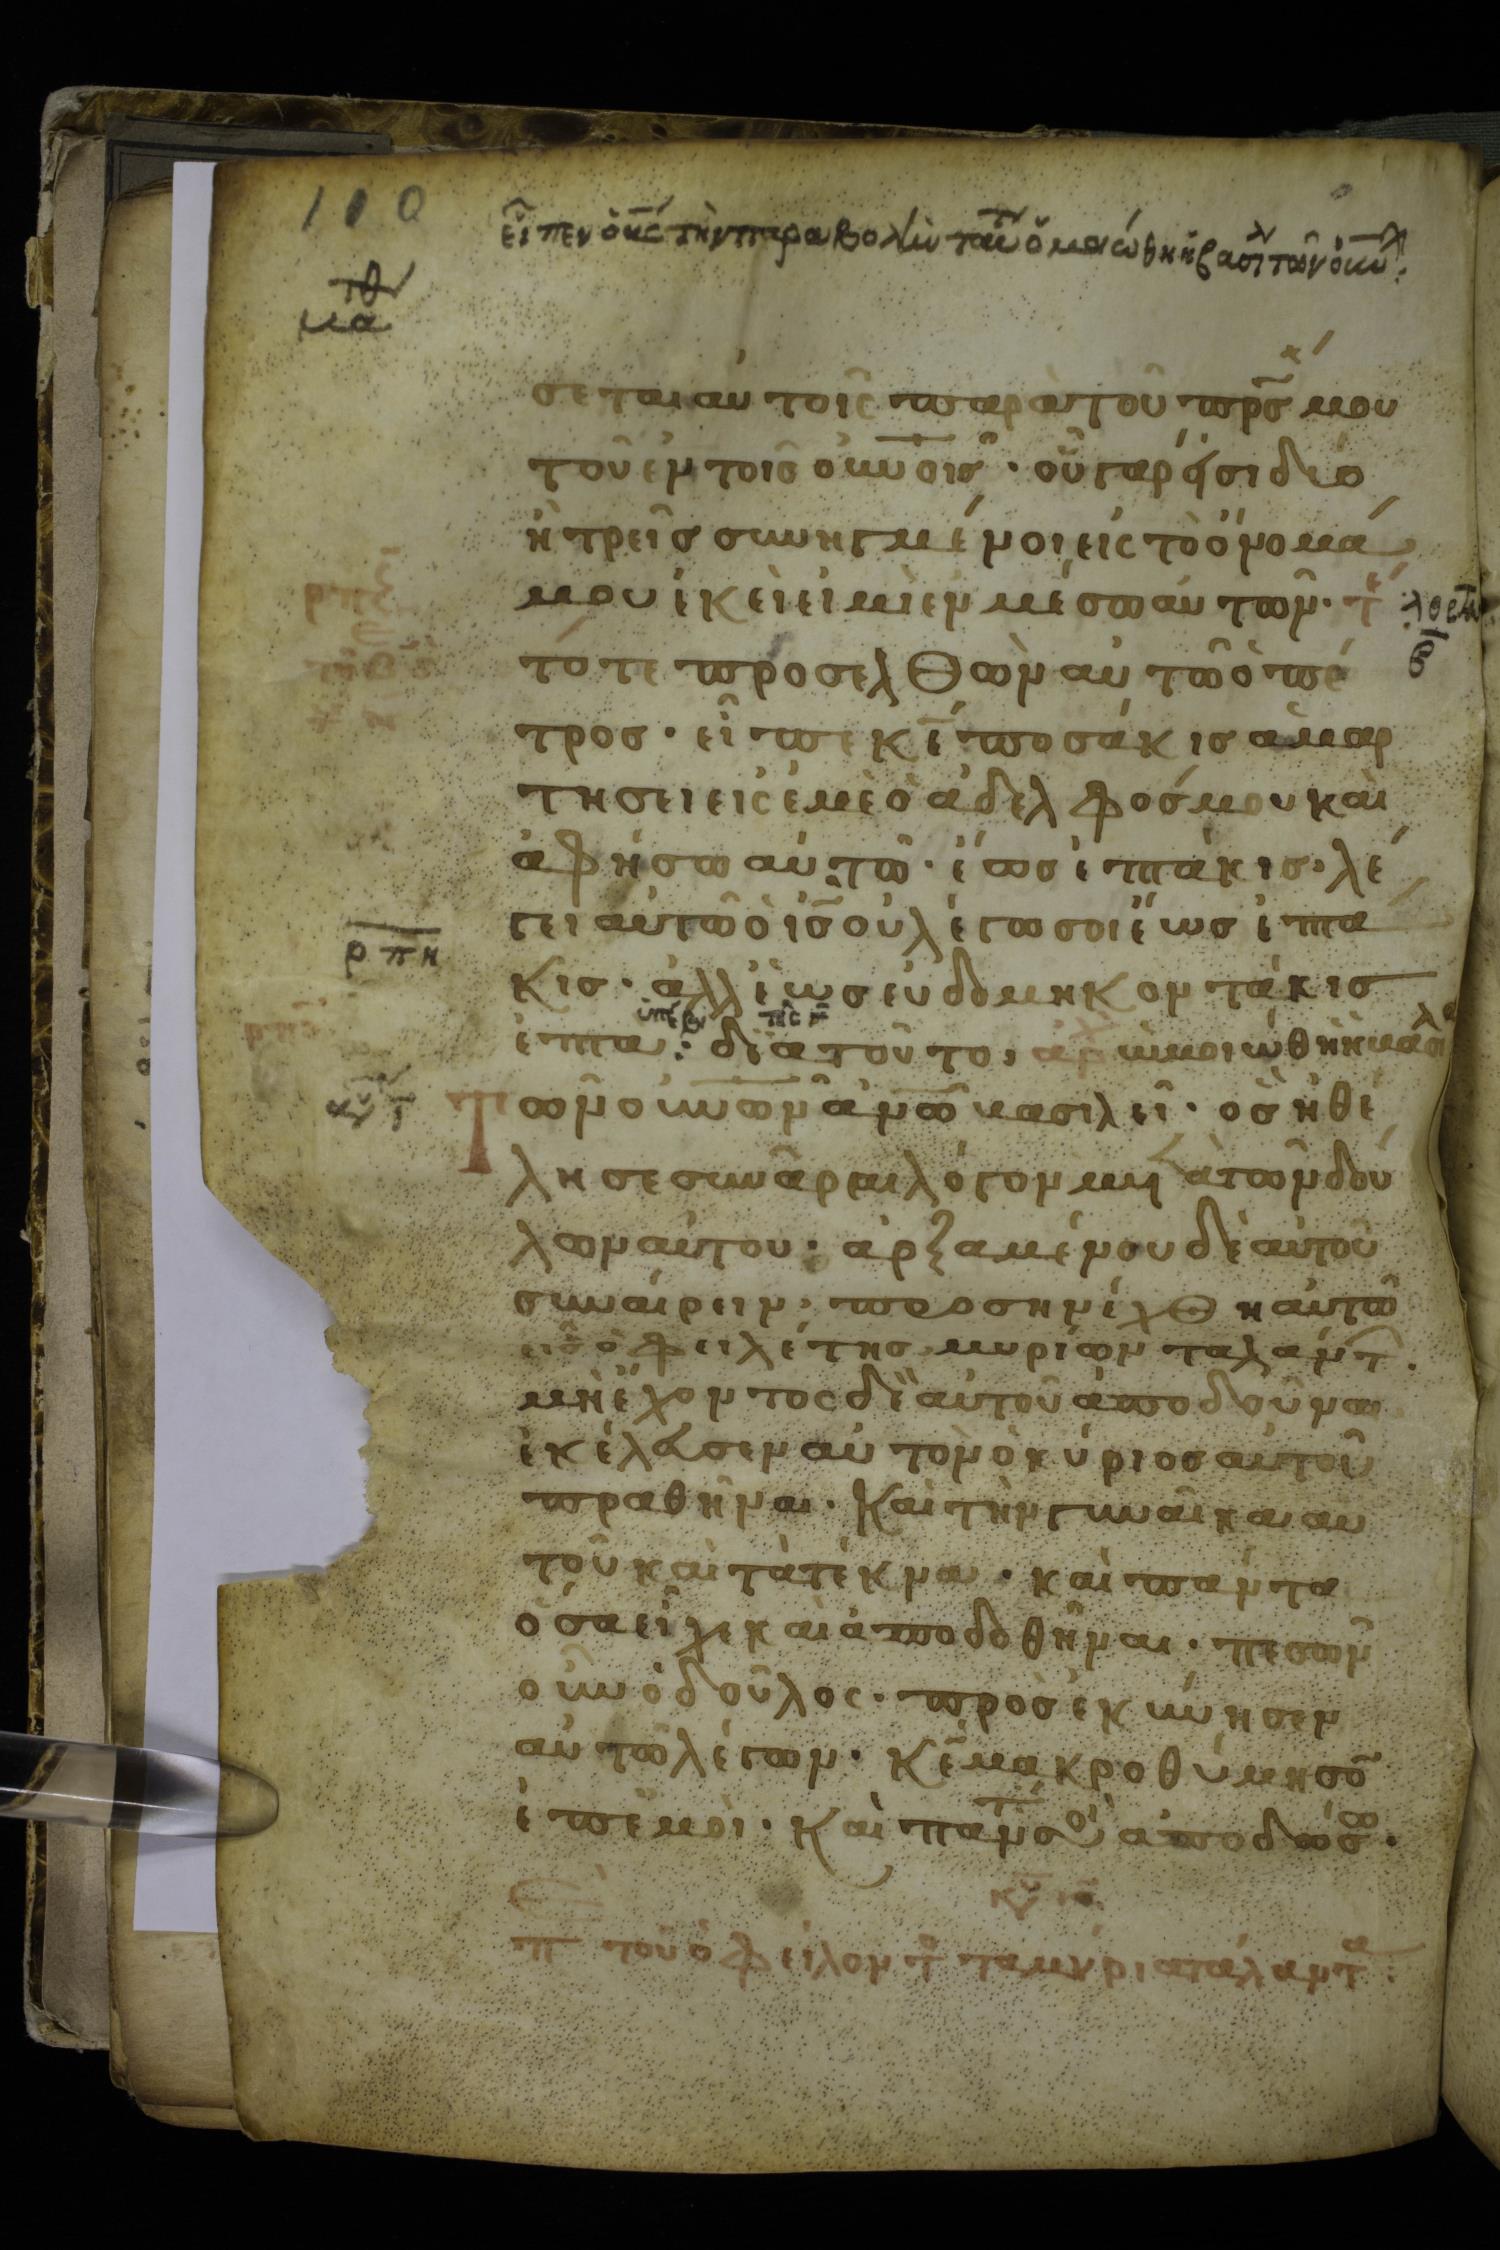 110
εἶπεν ὁ κς τὴν παραβολὴν ταύτην ὁμοιώθη ἡ βασιλ τῶν οὐνῶν
μα τθ
σεται αὐτοῖς παρὰ τοῦ πρς μου
τοῦ ἐν τοῖς οὐνοῖς · οὗ γάρ εἰσι δύο
ἢ τρεῖς συνηγμένοι εἰς τὸ ὄνομα
μου ἐκεῖ εἰμὶ ἐν μέσω αὐτῶν ·
τότε προσελθὼν αὐτῶ ὁ πέ
τρος · εἶπε κε ποσάκις ἁμαρ
τήσει εἰς ἐμὲ ὁ ἀδελφός μου καὶ
ἀφήσω αὐτῶ · ἕως ἑπτάκις · λέ
γει αὐτῶ ὁ ις οὐ λέγω σοι ἕως ἑπτά
ρπη
κις · ἀλλ ἕως ἑυδομηκοντάκις
ἑπτά : διατοῦτο, ὡμοιώθη ἡ βασιλ
τῶν οὐνῶν ἀνω βασιλεῖ · ὃς ἠθέ
λησε συνᾶραι λόγον μετὰ τῶν δού
λων αὐτοῦ · ἀρξαμένου δὲ αὐτοῦ
συναίρειν · προσηνέχθη αὐτῶ
εἷς ὀφειλέτης μυρίων ταλάντ .
μὴ ἔχοντος δὲ αὐτοῦ ἀποδοῦναι
ἐκέλευσεν αὐτὸν ὁ κύριος αὐτοῦ
πραθῆναι · Καὶ τὴν γυναῖκα αὐ
τοῦ καὶ τὰ τέκνα · καὶ πάντα
ὅσα εἶχε καὶ ἀποδοθῆναι · πεσὼν
οὖν ὁ δοῦλος · προσεκύνησεν
αὐτῶ λέγων · Κε μακροθύμησο
ἐπ ἐμοί · Καὶ πάντα σοι ἀποδώσω ·
π τοῦ ὀφείλοντο τὰ μύρια τάλαντα :